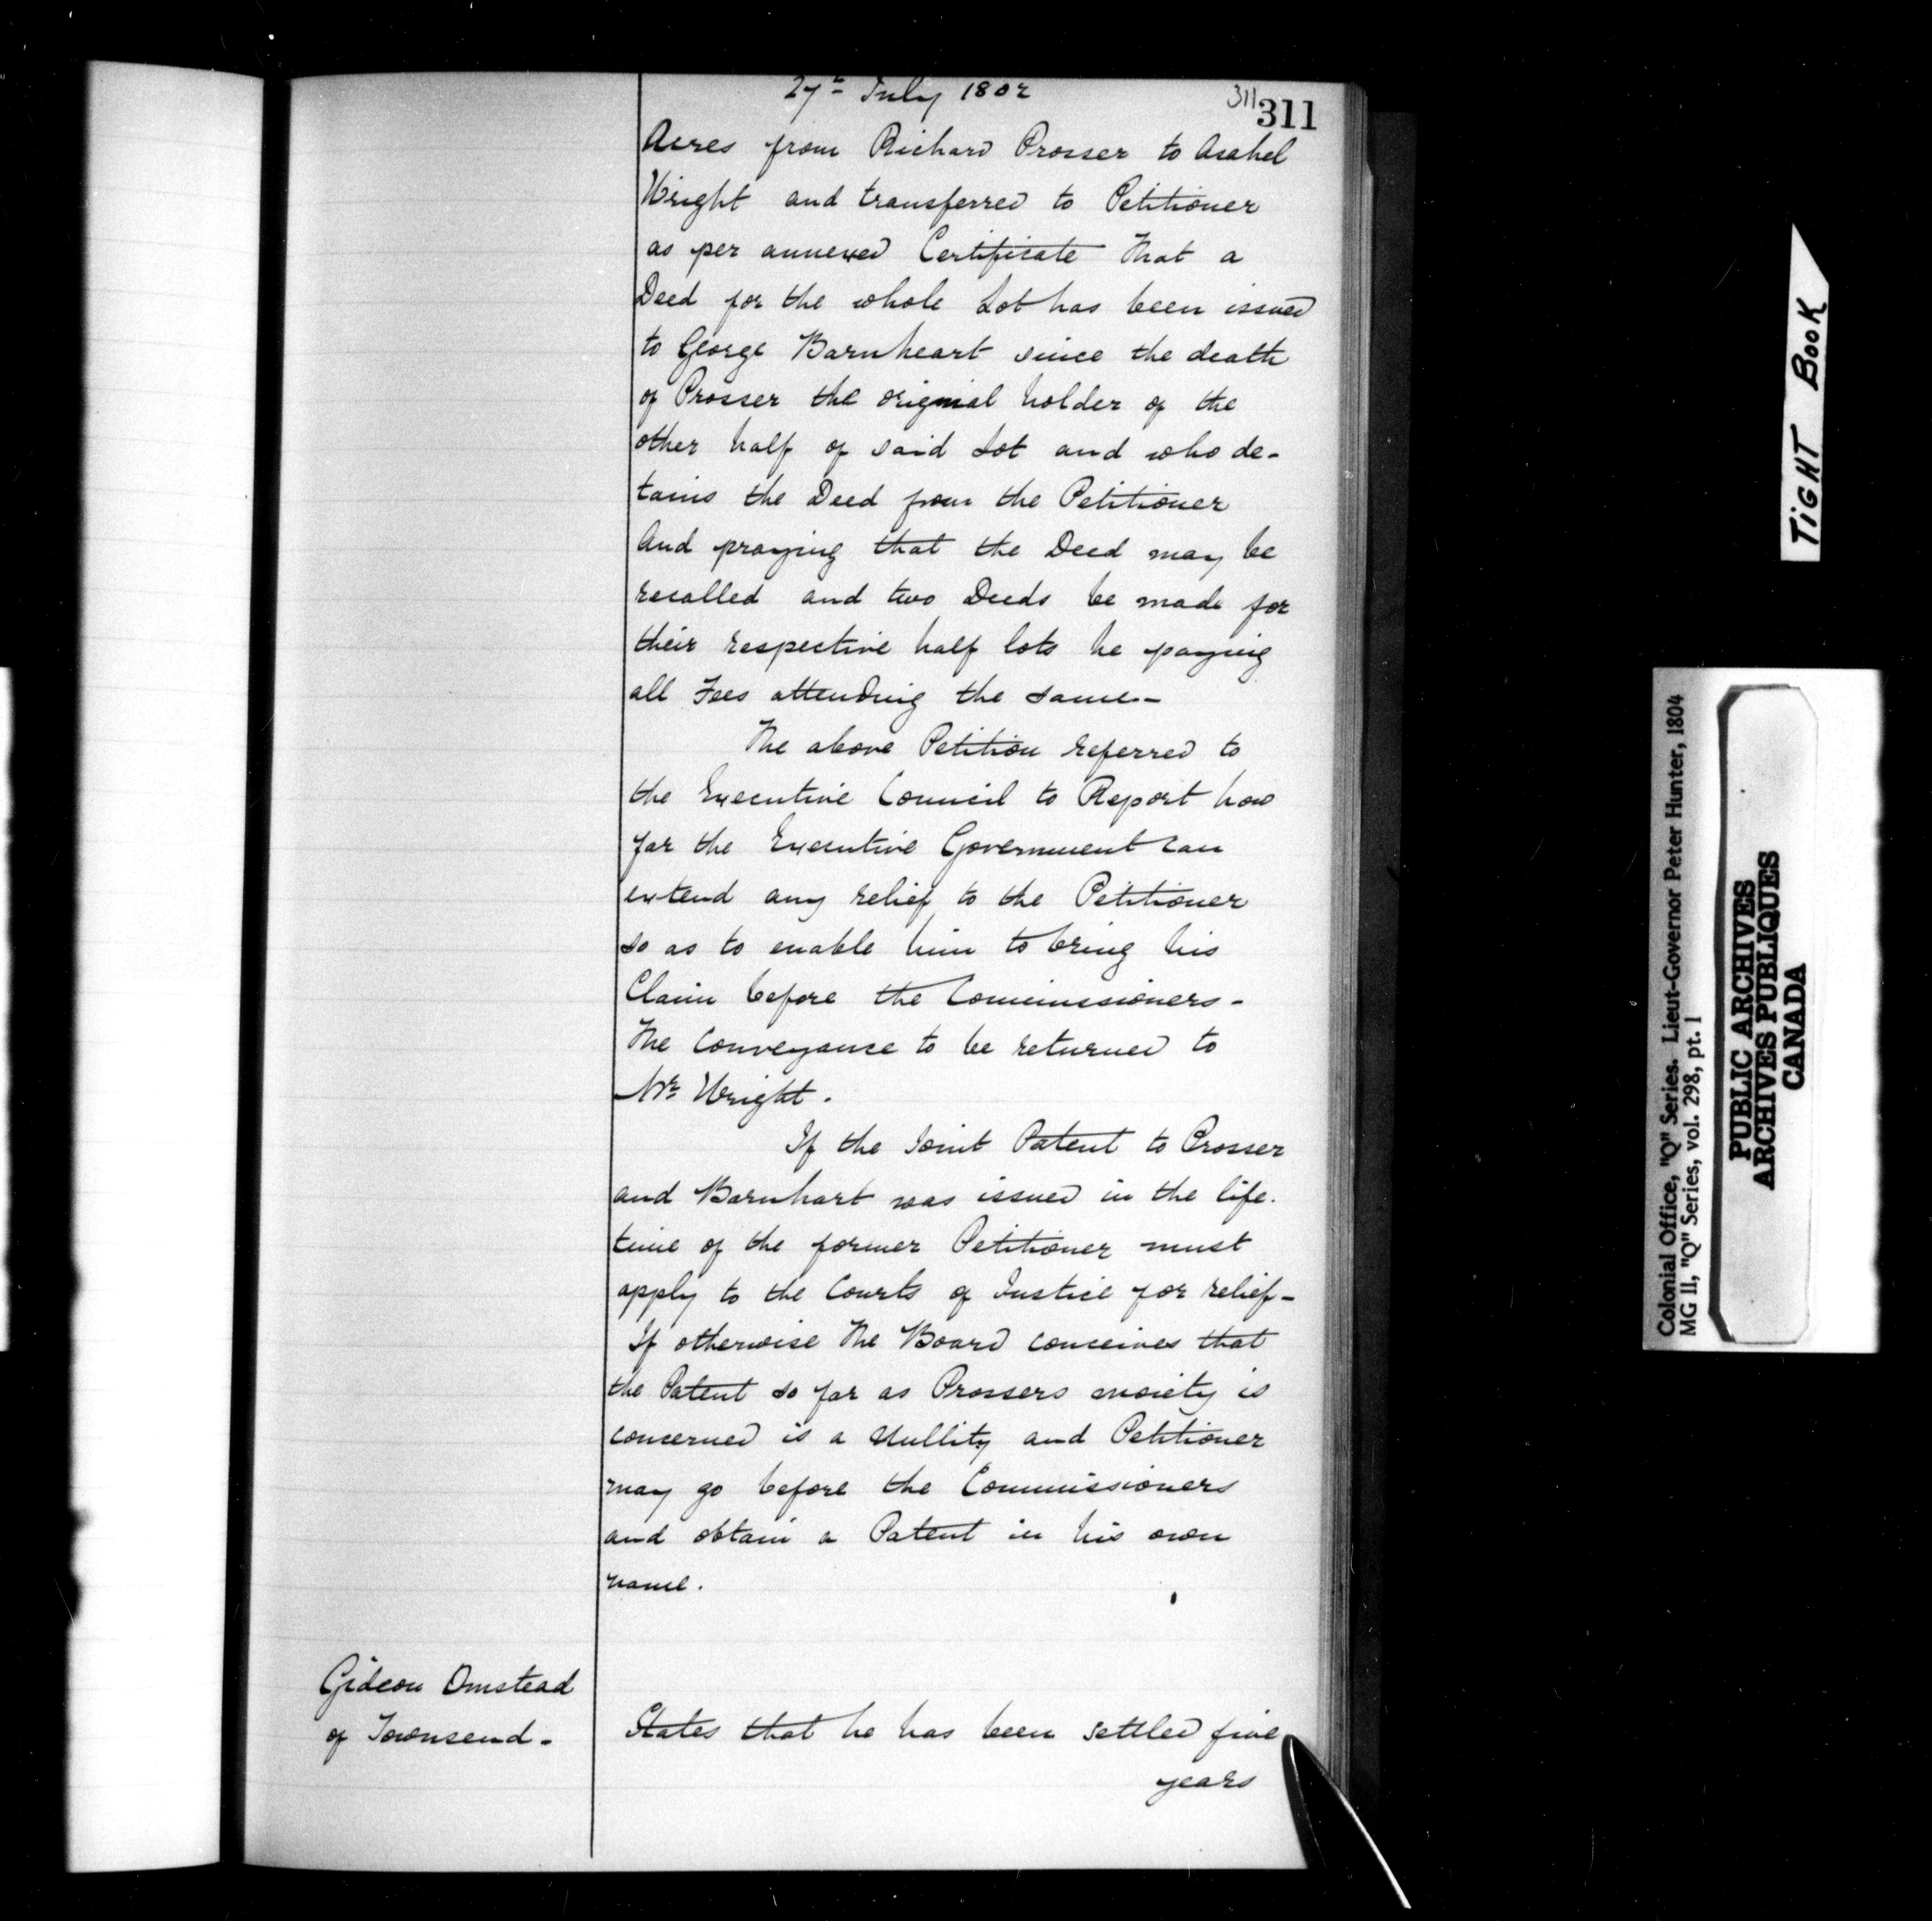 27th July 1802
311 311
Acres from Richard Prosser to Asahel
Wright and transferred to Petitioner
as per annexed Certificate That a
Deed for the whole Lot has been issued
to George Barnheart since the death
of Prosser the original holder of the
other half of said Lot and who de-
tains the Deed from the Petitioner
And praying that the Deed may be
recalled and two Deeds be made for
their respective half lots he paying
all Fees attending the same-
The above Petition referred to
the Executive Council to Report how
far the Executive Government can
extend any relief to the Petitioner
so as to enable him to bring his
Claim before the Commissioners-
The Conveyance to be returned to
Mr Wright.
If the Joint Patent to Prosser
and Barnhart was issued in the life.
time of the former Petitioner must
apply to the Courts of Justice for relief-
If otherwise The Board conceives that
the Patent so far as Prossers moiety is
concerned is a Nullity and Petitioner
may go before the Commissioners
and obtain a Patent in his own
name.
Gideon Omstead
of Townsend-
States that he has been settled five
years
TIGHT BOOK
Colonial Office, "Q" Series. Lieut-Governor Peter Hunter, 1804
MG 11, "Q" Series, vol. 298, pt. 1
PUBLIC ARCHIVES
ARCHIVES PUBLIQUES
CANADA